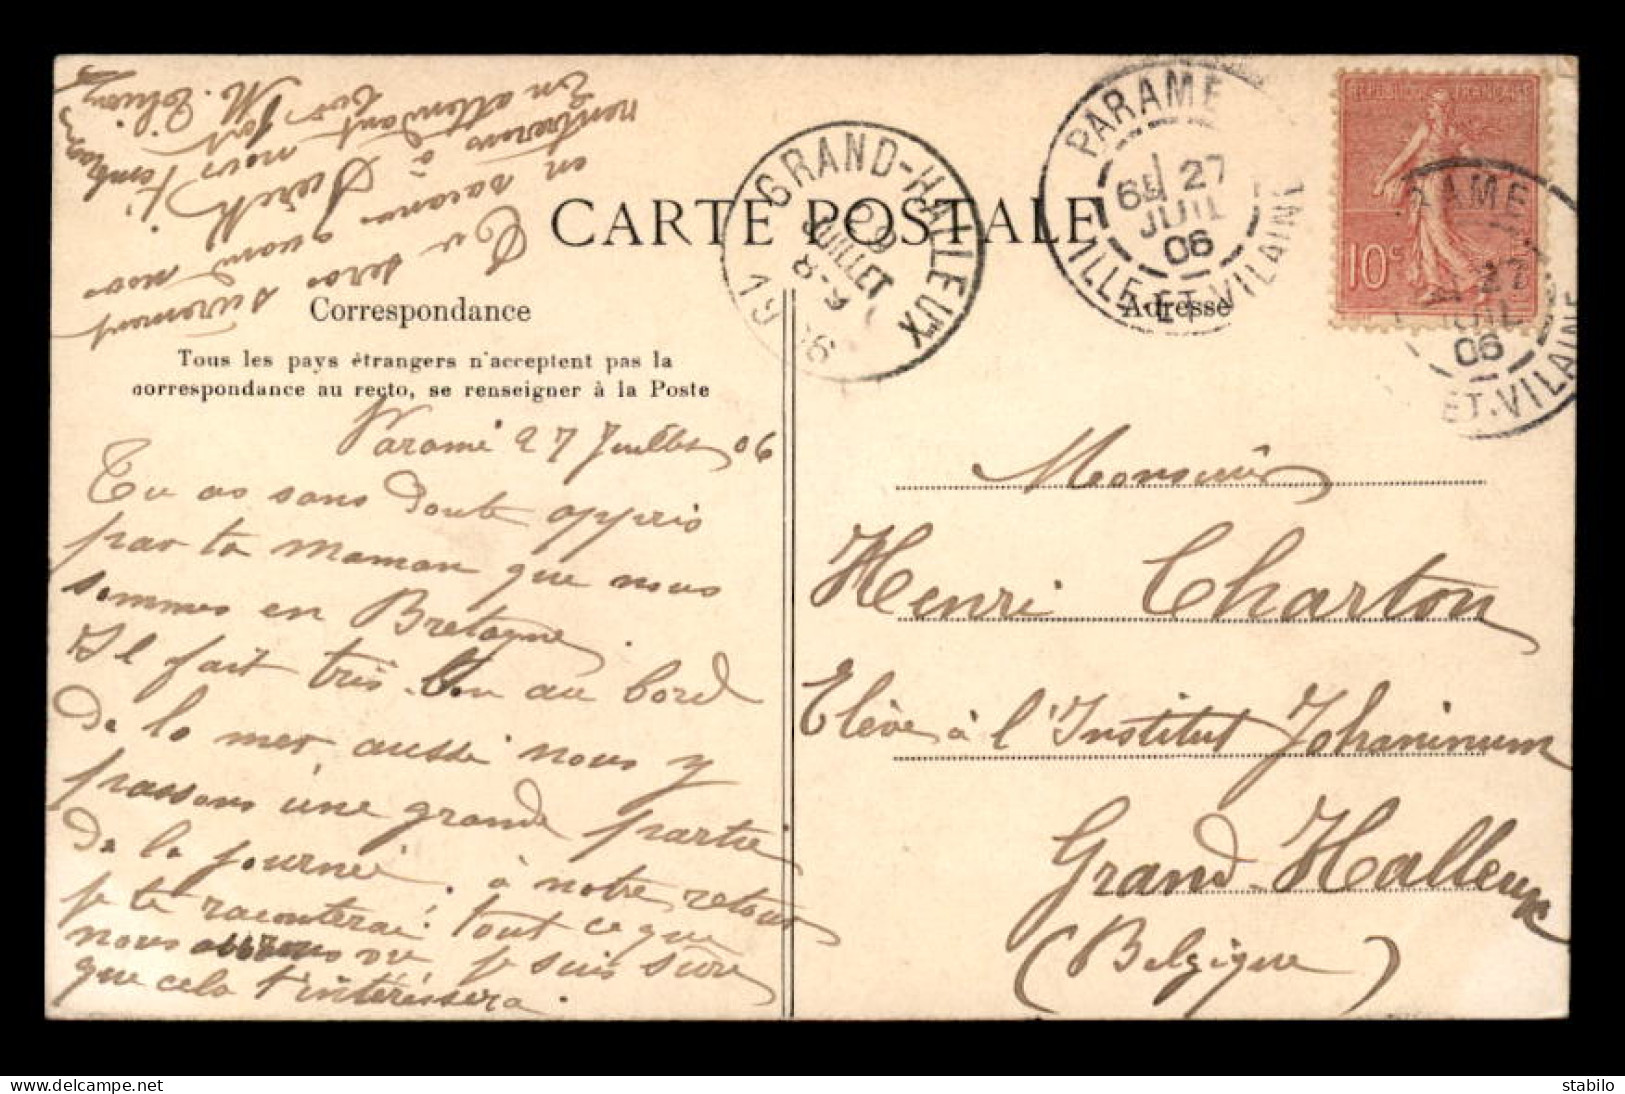 CARTE POSTALE
Correspondance
Tous les pays étrangers n'acceptent pas la
correspondance au recto, se renseigner à la Poste
Adresse
GRAND-HALLEUX
JUILLET
8-9
19
PARAME
6E 27
JUIL
06
ILLE-ET-VILAINE
REPUBLIQUE FRANÇAISE
10c
RAME
27
JUIL
06
ET-VILAINE
Paramé 27 Juillet 06
Tu as sans doute appris
par ta maman que nous
sommes en Bretagne.
Il fait très bon au bord
de la mer, aussi nous y
passons une grande partie
de la journée. à notre retour
je te raconterai tout ce que
nous je suis sûre
que cela t'intéressera.
Tu seras surement
en vacances quand nous
rentrerons à
En attendant nous
t'embrassons fort
M.
Monsieur
Henri Charton
Elève à l'Institut Johaninum
Grand-Halleux
(Belgique)
stabilo